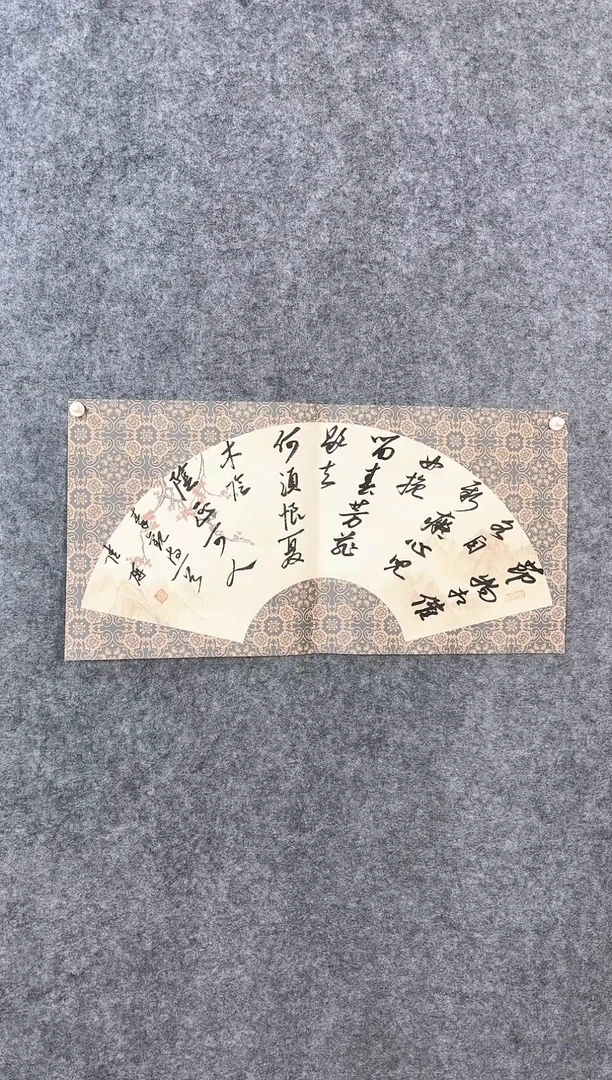 節物相催
各自
新癡心兒
女挽
留春芳菲
歇去
何須恨夏
木陰
陰正可人
秦觀詩一首